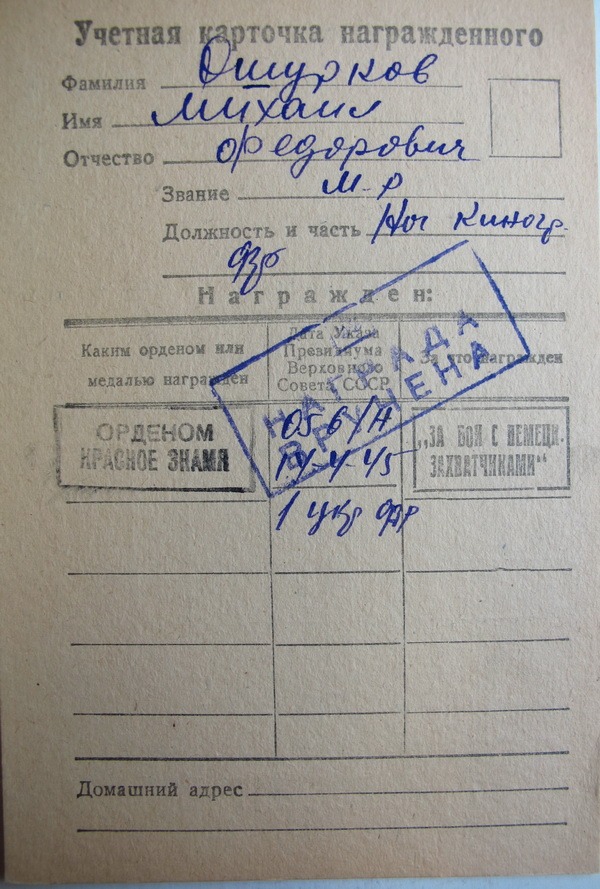 Учетная карточка награжденного
Фамилия Ошурков
Имя Михаил
Отчество Федорович
Звание м-р
Должность и часть Нач киногр.
Награжден:
Каким орденом или медалью награжден
Дата Указа Президиума Верховного Совета СССР
За что награжден
НАГРАДА
ВРУЧЕНА
ОРДЕНОМ
КРАСНОЕ ЗНАМЯ
056/н
14-4-45
1 укр фр
„ЗА БОИ С НЕМЕЦК.
ЗАХВАТЧИКАМИ“
Домашний адрес